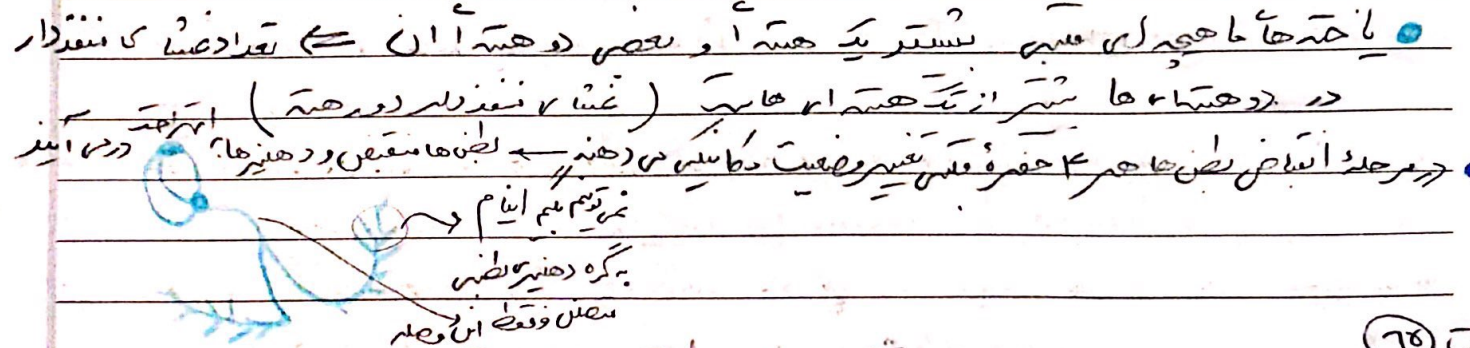 یاخته‌های ماهیچه‌ای قلبی بیشتر یک هسته‌ای و بعضی دو هسته‌ای‌اند ⇐ تعداد غشاهای منفذدار
در دو هسته‌ای ها بیشتر از تک هسته ای هاست (غشای منفذدار دور هسته)
در مرحلهٔ انقباض بطن ها هر ۴ حفرهٔ قلبی تغییر وضعیت مکانیکی می دهند ← بطن‌ها منقبض و دهلیزها به استراحت درمی آیند
نمی تونیم بگیم اینام
به گره دهلیزی بطنی
متصلن و فقط این وصله
۶۴